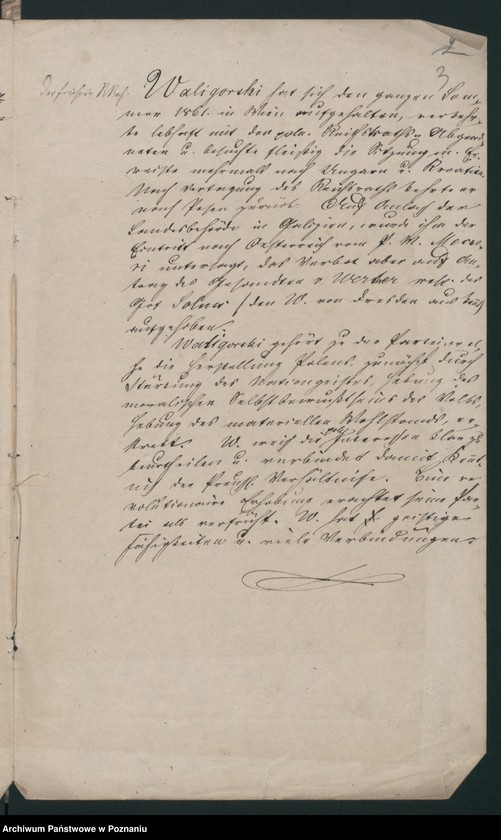 2
3
Waligorski hat sich den ganzen Som-
mer 1861. in Wien aufgehalten, verkehr-
te lebhaft mit den poln. Reichsraths Abgeord-
neten u. besuchte fleißig die Sitzungen. Er
reiste mehrmals nach Ungarn u. Kroatien.
Nach Vertagung des Reichsraths kehrte er
nach Posen zurück. Auf Anlaß der
Landesbehörde in Galizien, wurde ihm der
Eintritt nach Oesterreich vom P. M.
untersagt, das Verbot aber auf An-
trag des Gesandten v Werther
den W. von Dresden aus
aufgehoben.
Waligorski gehört zu der Partei,
die Herstellung Polens zunächst durch
Stärkung des Nationgeistes, Hebung des
moralischen Selbstbewußtseins des Volks,
Hebung des materiellen Wohlstands, er-
strebt. W. weiß die Interessen klar zu
beurtheilen u. verbindet damit Kennt-
niß der Preuß. Verhältnisse. Eine re-
volutionaire Erhebung erachtet seine Par-
tei als verfrüht. W. hat geistige
Fähigkeiten u. viele Verbindungen.
Archiwum Państwowe w Poznaniu